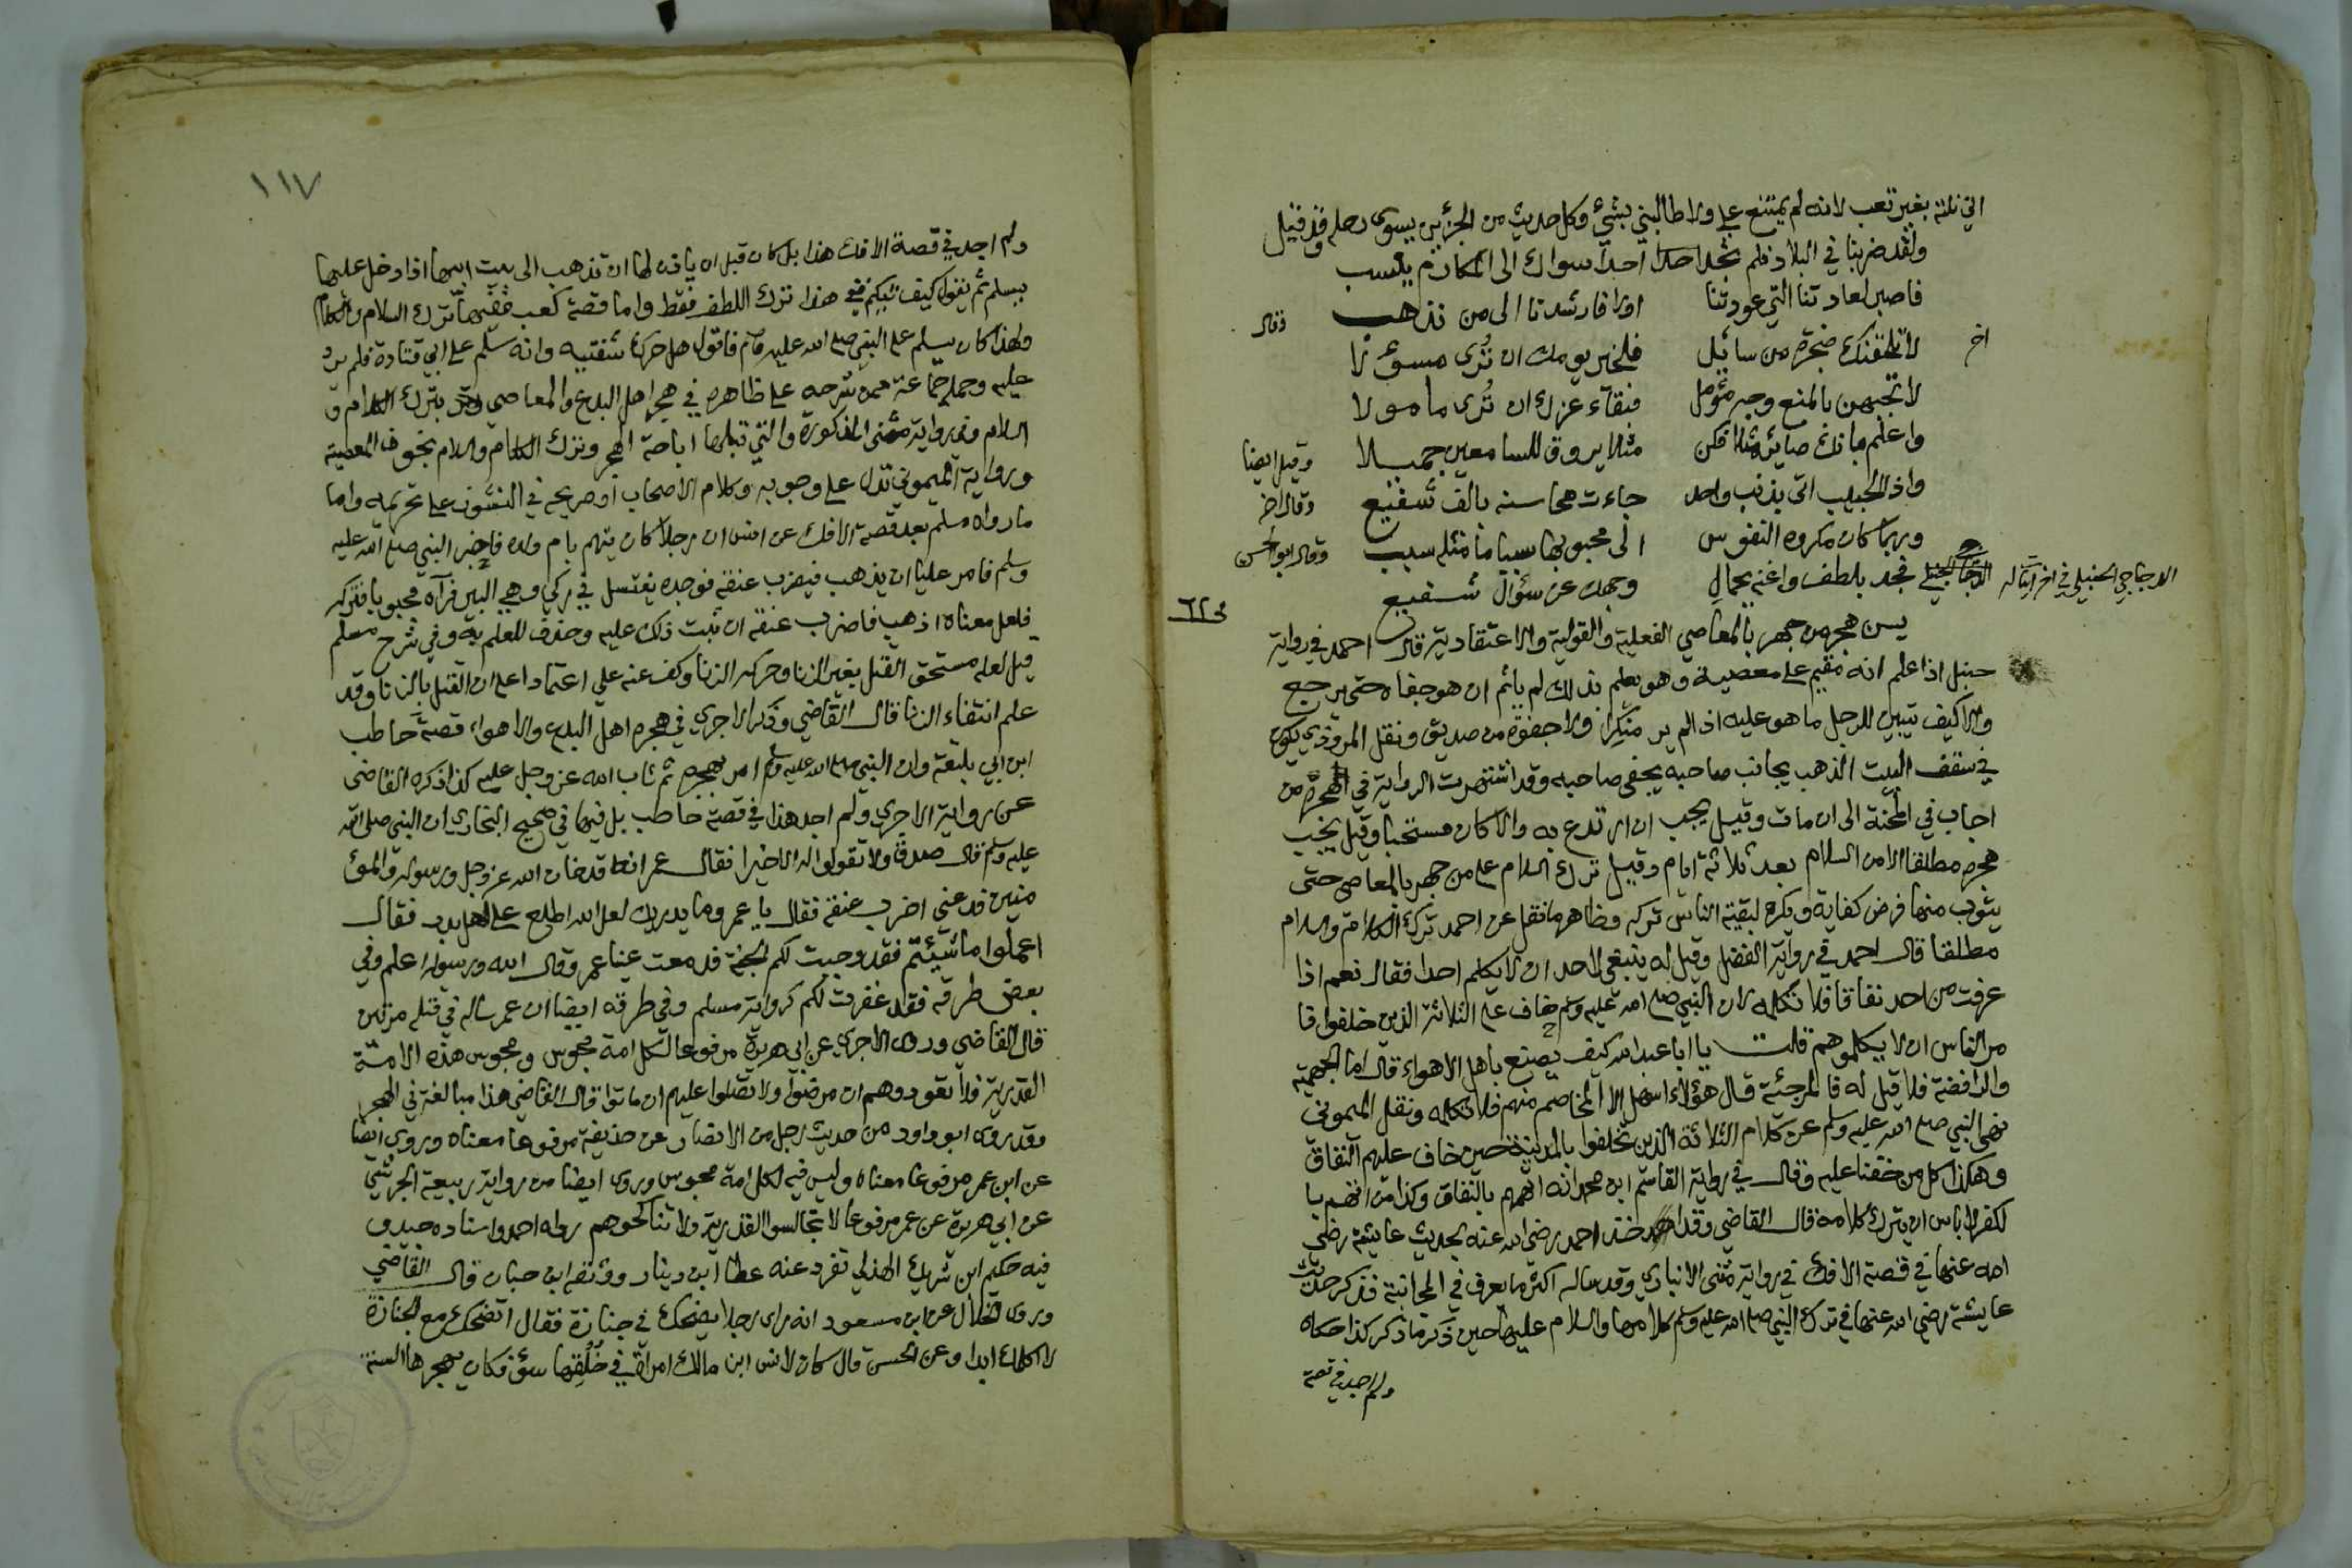 اني نلته بغير تعب لانه لم يمتنع علي ولا طالبني بشيء وكل حديث من الجزئين يسوى رحله وقد قيل
ولقد ضربنا في البلاد فلم نجد احدا سواك الى المكارم ينسب
فاصبر لعادتنا التي عودتنا اولا فارشدنا الى من نذهب وقال
اخر لا تلقينك ضجرة من سائل فلخير يومك ان تُرى مسؤلا
لا تجبهن بالمنع وجه مؤمل فبقاء عزك ان تُرى مامولا
واعلم بانك صائر مثلا فكن مثلا يروق للسامعين جميلا وقيل ايضا
واذا الحبيب اتى بذنب واحد جاءت محاسنه بالف شفيع وقال اخر
وربما كان مكروه النفوس الى محبوبها سببا ما مثله سبب وقال ابو الحسن
الدجاجي الحنبلي في اخر ابيات له فجد بلطف واغنه بجمال وجهك عن سؤال شفيع
يسن هجر من جهر بالمعاصي الفعلية والقولية والاعتقادية قال احمد في رواية
حنبل اذا علم انه مقيم على معصية وهو يعلم بذلك لم ياثم ان هو جفاه حتى يرجع
والا كيف تبين للرجل ما هو عليه اذا لم ير منكرا ولا جفوة من صديق ونقل المروذي يكون
في سقف البيت الذهب يجانب صاحبه يجفى صاحبه وقد اشتهرت الرواية في الهجرة من
اجاب في المحنة الى ان مات وقيل يجب ان ارتدع به والا كان مستحبا وقيل يجب
هجره مطلقا الا من السلام بعد ثلاثة ايام وقيل ترك السلام على من جهر بالمعاصي حتى
يتوب منها فرض كفاية ويكره لبقية الناس تركه وظاهر ما نقل عن احمد ترك الكلام والسلام
مطلقا قال احمد في رواية الفضل وقيل له ينبغي لاحد ان لا يكلم احدا فقال نعم اذا
عرفت من احد نفاقا فلا تكلمه لان النبي صلى الله عليه وسلم خاف على الثلاثة الذين خلفوا فا
مر الناس ان لا يكلموهم قلت يا ابا عبد الله كيف يصنع باهل الاهواء قال اما الجهمية
والرافضة فلا قيل له فالمرجئة قال هؤلاء اسهل الا المخاصم منهم فلا تكلمه ونقل الميموني
نهى النبي صلى الله عليه وسلم عن كلام الثلاثة الذين تخلفوا بالمدينة حين خاف عليهم النفاق
وهكذا كل من خفنا عليه وقال في رواية القاسم ابن محمد انه اتهم بالنفاق وكذا من اتهم با
لكفر لا باس ان يترك كلامه قال القاضي وقد اخذ احمد رضي الله عنه بحديث عايشة رضي
الله عنها في قصة الافك في رواية مثنى الانباري وقد ساله اكثر ما يعرف في المجانبة فذكر حديث
عايشة رضي الله عنها في ترك النبي صلى الله عليه وسلم كلامها والسلام عليها حين ذكر ما ذكر كذا حكاه
ولم اجد في قصة
١١٧
ولم اجد في قصة الافك هذا بل كان قبل ان ياذن لها ان تذهب الى بيت ابيها اذا دخل عليها
يسلم ثم يقول كيف تيكم ففي هذا ترك اللطف فقط واما قصة كعب ففيها ترك السلام والكلام
ولهذا كان يسلم على النبي صلى الله عليه وسلم فاقول هل حرك شفتيه وانه سلم على ابي قتادة فلم يرد
عليه وحمله جماعة ممن شرحه على ظاهره في هجر اهل البدع والمعاصي بترك الكلام و
السلام وفي رواية مثنى المذكورة والتي قبلها اباحة الهجر وترك الكلام والسلام بخوف المعصية
ورواية الميموني تدل على وجوبه وكلام الاصحاب او صريحه في النشوز على تحريمه واما
ما رواه مسلم بعد قصة الافك عن انس ان رجلا كان يتهم بام ولده فاخبر النبي صلى الله عليه
وسلم فامر عليا ان يذهب فيضرب عنقه فوجده يغتسل في ركي وهي البير فرآه مجبوبا فتركه
فلعل معناه اذهب فاضرب عنقه ان ثبت ذلك عليه وحذف للعلم به وفي شرح مسلم
قيل لعله مستحق القتل بغير الزنا وحركه الزنا وكف عنه علي اعتمادا على ان القتل بالزنا وقد
علم انتفاء الزنا قال القاضي وذكر الاجري في هجرة اهل البدع والاهواء قصة حاطب
ابن ابي بلتعة وان النبي صلى الله عليه وسلم امر بهجره ثم تاب الله عز وجل عليه كذا ذكره القاضي
عن رواية الاجري ولم اجد هذا في قصة حاطب بل فيها في صحيح البخاري ان النبي صلى الله
عليه وسلم قال صدق ولا تقولوا له الا خيرا فقال عمر انه قد خان الله عز وجل ورسوله والمؤ
منين فدعني اضرب عنقه فقال يا عمر وما يدريك لعل الله اطلع على اهل بدر فقال
اعملوا ما شيئتم فقد وجبت لكم الجنة فدمعت عينا عمر وقال الله ورسوله اعلم وفي
بعض طرقه فقد غفرت لكم كرواية مسلم وفي طرقه ايضا ان عمر ساله في قتله مرتين
قال القاضي وروى الاجري عن ابي هريرة مرفوعا لكل امة مجوس ومجوس هذه الامة
القدرية فلا تعودوهم ان مرضوا ولا تصلوا عليهم ان ماتوا قال القاضي هذا مبالغة في الهجر
وقد روى ابو داود من حديث رجل من الانصار عن حذيفة مرفوعا معناه وروى ايضا
عن ابن عمر مرفوعا معناه وليس فيه لكل امة مجوس وروى ايضا من رواية ربيعة الجرشي
عن ابي هريرة عن عمر مرفوعا لا تجالسوا القدرية ولا تناكحوهم رواه احمد واسناده جيد و
فيه حكيم ابن شريك الهذلي تفرد عنه عطا ابن دينار ووثقه ابن حبان قال القاضي
وروى الخلال عن ابن مسعود انه راى رجلا يضحك في جنازة فقال اتضحك مع الجنازة
لا اكلمك ابدا وعن الحسن قال كان لانس ابن مالك امراة في خلقها سؤ فكان يهجرها السنة